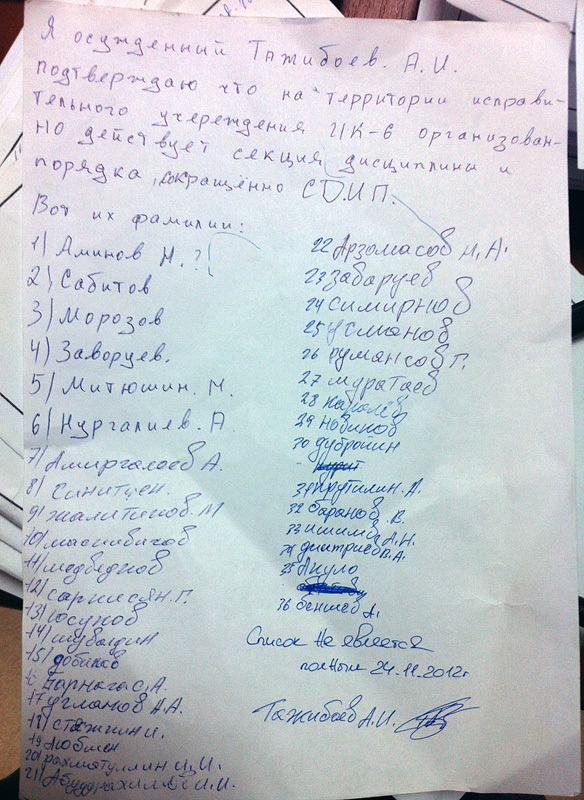 Я осужденный Тажибоев. А.И.
подтверждаю что на территории исправи-
тельного учереждения ИК-6 организован-
но действует секция дисциплины и
порядка, сокращённо С.Д.И.П.
Вот их фамилии:
1) Аминов Н. ?
2) Сабитов
3) Морозов
4) Заворуев.
5) Митюшин. М.
6) Нургалиев. А.
7) Амиргалеев А.
8) Синитцен.
9) Жалитинов. М
10)
11) медведнов
12) Саркисян. Г.
13) юсупов
14) шувалдин
15) добинов
16 Барнага С.А.
17 углanов А.А.
18) Стажил И.
19 Любмен
20) рахматуллин И.И.
21) Абудрахимов И.И.
22 Арзомасов Н.А.
23 забаруев
24 симирнов
25 усманов
26 румансов Г.
27 муратаев
28 Каралёв
29 новиков
30 дубройин
31 Крутилин. А.
32 баранов В.
33 ишимов А.Н.
34 дмитриев В.А.
35 Акуло
36 бектиев А.
Список не является
полным 24.11.2012г
Тажибоев А.И.